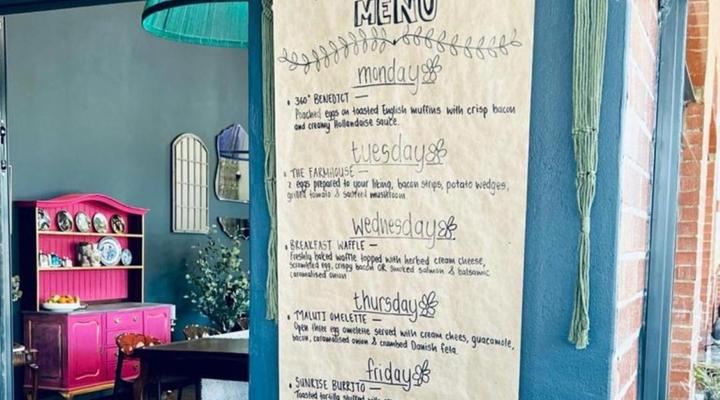 MENU
monday
• 360° BENEDICT —
Poached eggs on toasted English muffins with crisp bacon
and creamy Hollandaise sauce.
tuesday
• THE FARMHOUSE —
2 eggs prepared to your liking, bacon strips, potato wedges,
grilled tomato & sautéed mushroom
wednesday
• BREAKFAST WAFFLE —
Freshly baked waffle topped with herbed cream cheese,
scrambled egg, crispy bacon OR smoked salmon & balsamic
caramalised onion
thursday
• MALUTI OMELETTE —
Open three egg omelette served with cream chees, guacamole,
bacon, caramalised onion & crumbed Danish feta.
friday
• SUNRISE BURRITO —
Toasted tortilla stuffed with